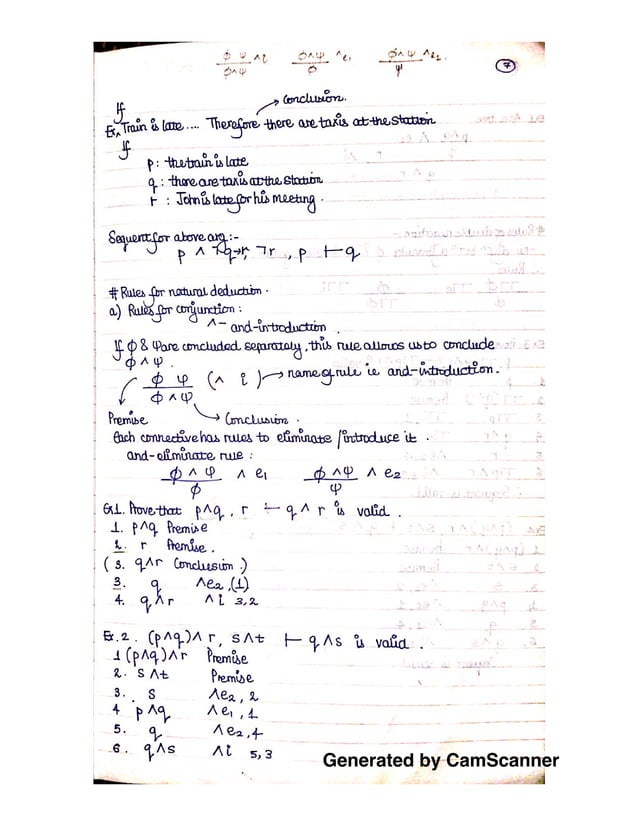 ϕ ψ ∧i ϕ∧ψ ∧e₁ ϕ∧ψ ∧e₂
ϕ∧ψ ϕ ψ
7
Conclusion.
If
Ex, Train is late .... Therefore there are taxis at the station
If
p : the train is late
q : there are taxis at the station
r : John is late for his meeting.
Sequent for above arg :-
p ∧ ¬q→r, ¬r, p ⊢ q
# Rules for natural deduction.
a) Rules for conjunction :
∧- and-introduction.
If ϕ & ψ are concluded separately, this rule allows us to conclude
ϕ ∧ ψ.
ϕ ψ (∧ i) → name of rule ie and-introduction.
ϕ ∧ ψ
Premise → Conclusion.
Each connective has rules to eliminate / introduce it.
and-eliminate rule :
ϕ ∧ ψ ∧ e₁ ϕ ∧ψ ∧ e₂
ϕ ψ
Ex1. Prove that p∧q, r ⊢ q∧r is valid.
1. p∧q Premise
2. r Premise.
(3. q∧r Conclusion.)
3. q ∧e₂,(1)
4. q∧r ∧i 3,2
Ex.2. (p∧q)∧r, s∧t ⊢ q∧s is valid.
1 (p∧q)∧r Premise
2. s∧t Premise
3. s ∧e₂, 2
4 p∧q ∧e₁, 1
5. q ∧e₂,4
6. q∧s ∧i 5,3
Generated by CamScanner